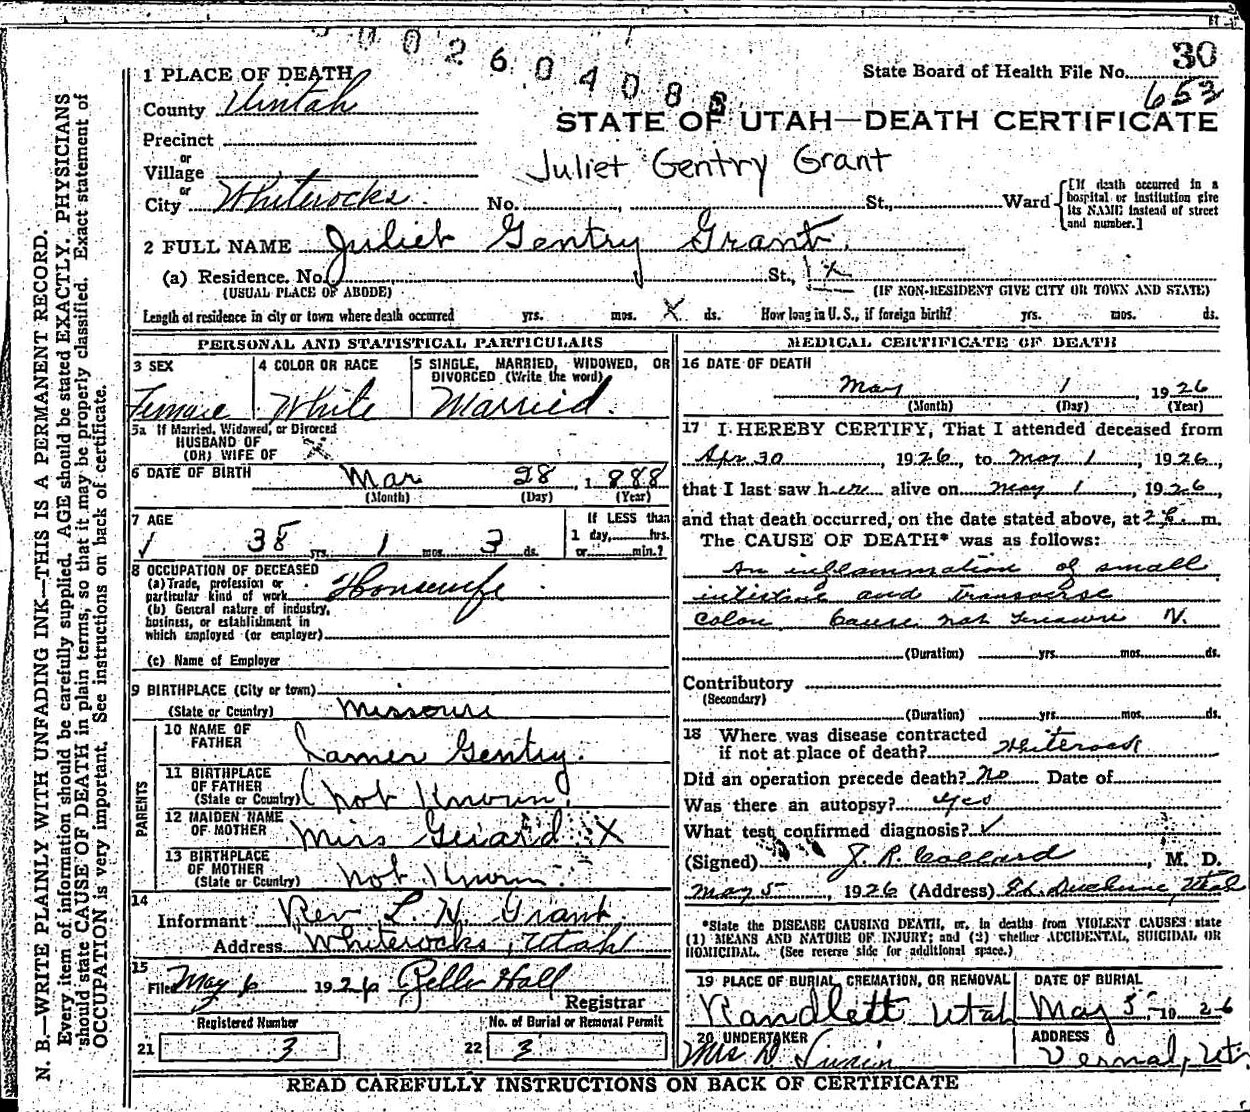 30
State Board of Health File No.
653
1 PLACE OF DEATH
County Uintah
STATE OF UTAH—DEATH CERTIFICATE
Precinct
or
Village
Juliet Gentry Grant
or
City Whiterocks No. St., Ward
[If death occurred in a hospital or institution give its NAME instead of street and number.]
2 FULL NAME Juliet Gentry Grant
(a) Residence. No. St., X
(USUAL PLACE OF ABODE) (IF NON-RESIDENT GIVE CITY OR TOWN AND STATE)
Length of residence in city or town where death occurred yrs. mos. X ds. How long in U. S., if foreign birth? yrs. mos. ds.
PERSONAL AND STATISTICAL PARTICULARS
3 SEX
Female
4 COLOR OR RACE
White
5 SINGLE, MARRIED, WIDOWED, OR DIVORCED (Write the word)
Married.
5a If Married, Widowed, or Divorced
HUSBAND OF
(OR) WIFE OF X
6 DATE OF BIRTH Mar 28, 1888
(Month) (Day) (Year)
7 AGE
38 yrs. 1 mos. 3 ds.
If LESS than
1 day, hrs.
or min.?
8 OCCUPATION OF DECEASED
(a) Trade, profession or particular kind of work Housewife
(b) General nature of industry, business, or establishment in which employed (or employer)
(c) Name of Employer
9 BIRTHPLACE (City or town)
(State or Country) Missouri
PARENTS
10 NAME OF FATHER Gentry.
11 BIRTHPLACE OF FATHER (State or Country) Not Known.
12 MAIDEN NAME OF MOTHER Miss X
13 BIRTHPLACE OF MOTHER (State or Country) Not Known.
14
Informant Rev L. H. Grant
Address Whiterocks, Utah
15
Filed May 6 1926 Hall
Registrar
Registered Number
21 3
No. of Burial or Removal Permit
22 3
MEDICAL CERTIFICATE OF DEATH
16 DATE OF DEATH
May 1 1926
(Month) (Day) (Year)
17 I HEREBY CERTIFY, That I attended deceased from
Apr 30, 1926, to May 1, 1926,
that I last saw her alive on May 1, 1926,
and that death occurred, on the date stated above, at m.
The CAUSE OF DEATH* was as follows:
An inflammation of small
intestine and transverse
colon cause not
(Duration) yrs. mos. ds.
Contributory
(Secondary)
(Duration) yrs. mos. ds.
18 Where was disease contracted
if not at place of death? Whiterock
Did an operation precede death? No Date of
Was there an autopsy? Yes
What test confirmed diagnosis?
(Signed) J. R. Collard, M. D.
May 5, 1926 (Address) Ft. Duchesne, Utah
*State the DISEASE CAUSING DEATH, or, in deaths from VIOLENT CAUSES state
(1) MEANS AND NATURE OF INJURY; and (2) whether ACCIDENTAL, SUICIDAL OR
HOMICIDAL. (See reverse side for additional space.)
19 PLACE OF BURIAL, CREMATION, OR REMOVAL
Randlett Utah
DATE OF BURIAL
May 5 1926
20 UNDERTAKER
Mrs D. Swain
ADDRESS
Vernal, Ut.
READ CAREFULLY INSTRUCTIONS ON BACK OF CERTIFICATE
N. B.—WRITE PLAINLY WITH UNFADING INK—THIS IS A PERMANENT RECORD.
Every item of information should be carefully supplied. AGE should be stated EXACTLY. PHYSICIANS
should state CAUSE OF DEATH in plain terms, so that it may be properly classified. Exact statement of
OCCUPATION is very important. See instructions on back of certificate.